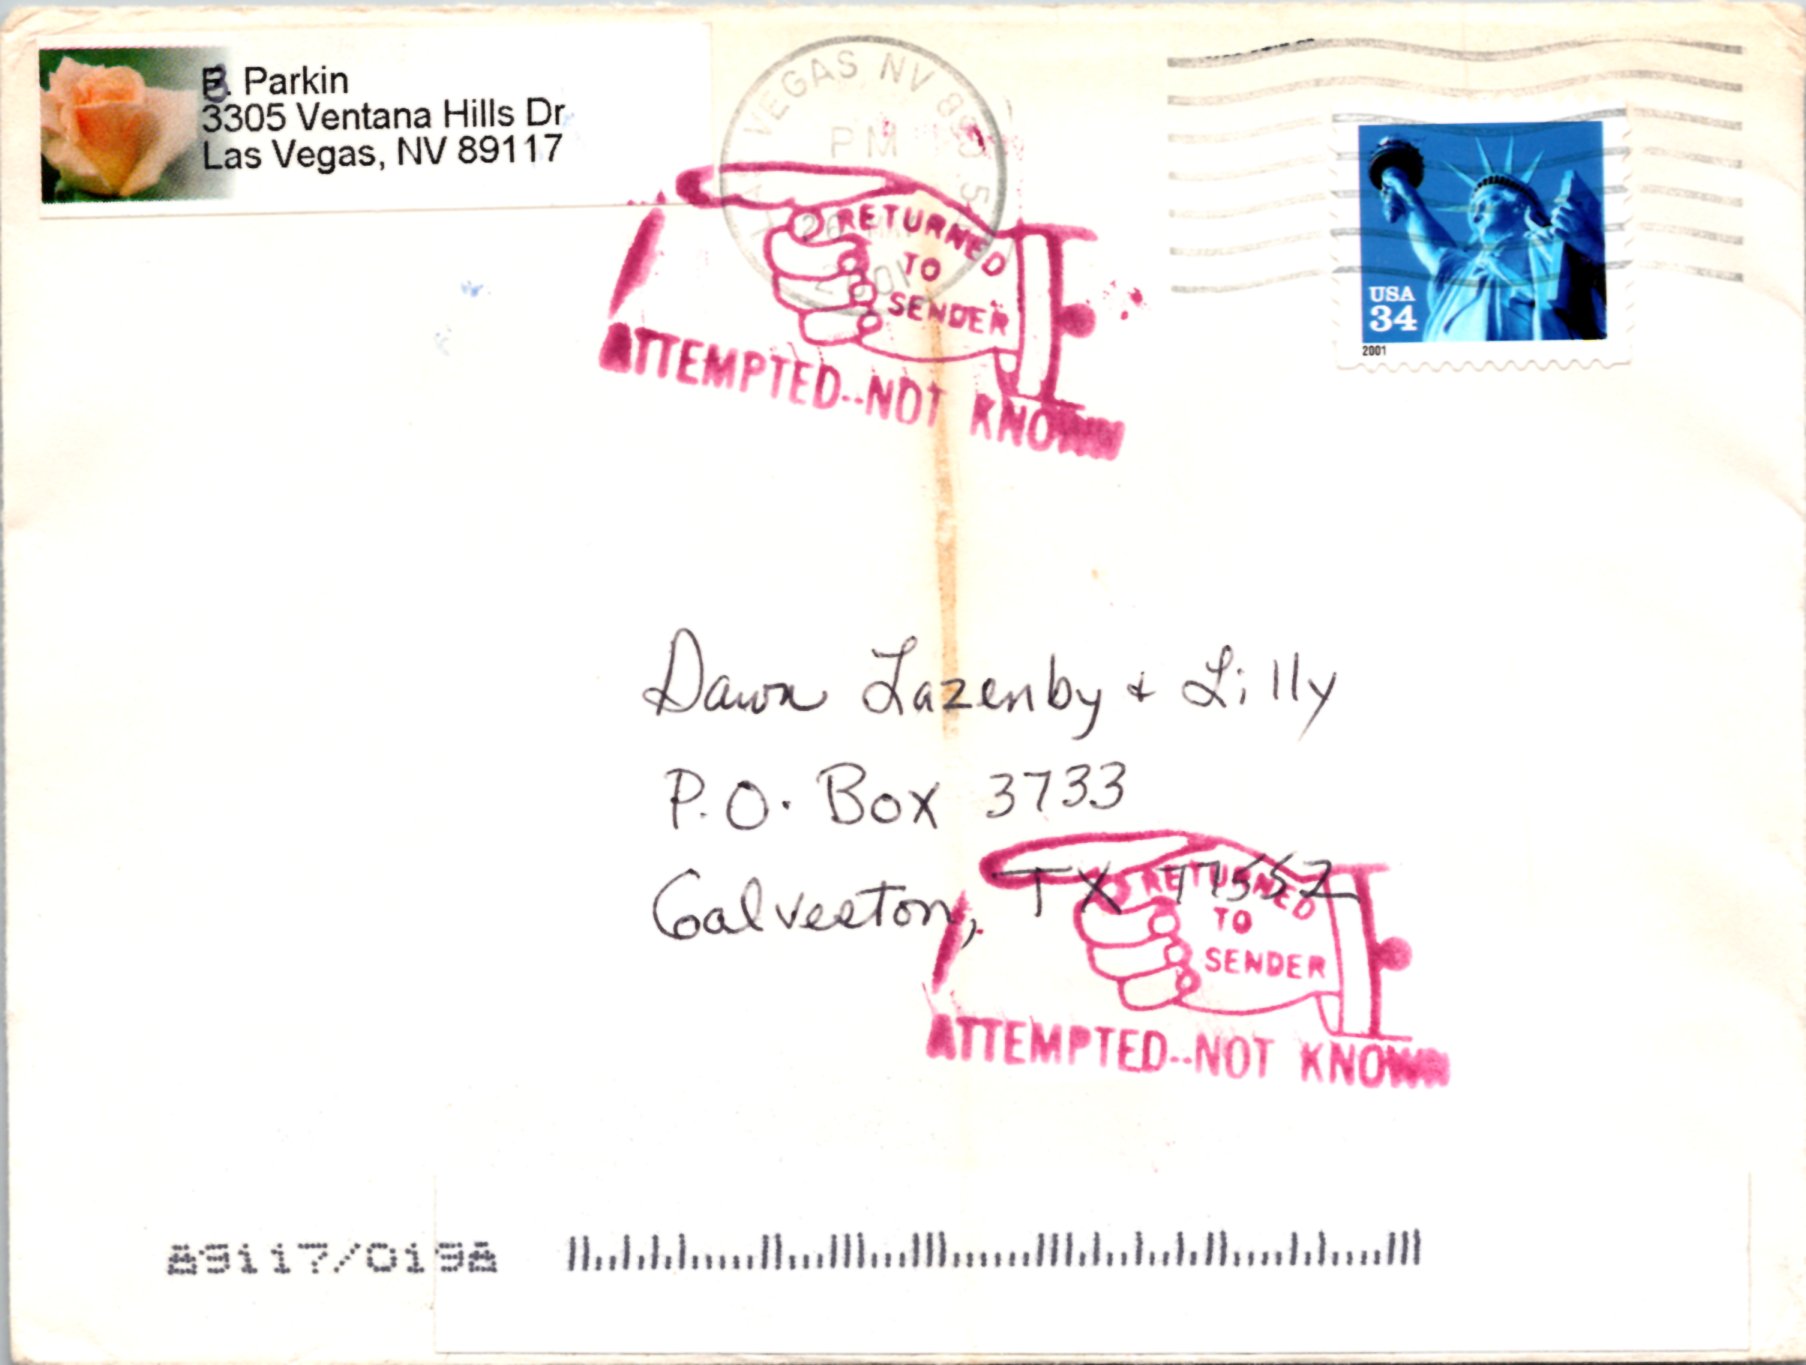 B. Parkin
3305 Ventana Hills Dr
Las Vegas, NV 89117
VEGAS NV 89
PM
26
2001
RETURNED
TO
SENDER
ATTEMPTED--NOT KNOWN
USA
34
2001
Dawn Lazenby & Lilly
P.O. Box 3733
Galveston, TX 77552
RETURNED
TO
SENDER
ATTEMPTED--NOT KNOWN
89117/0198